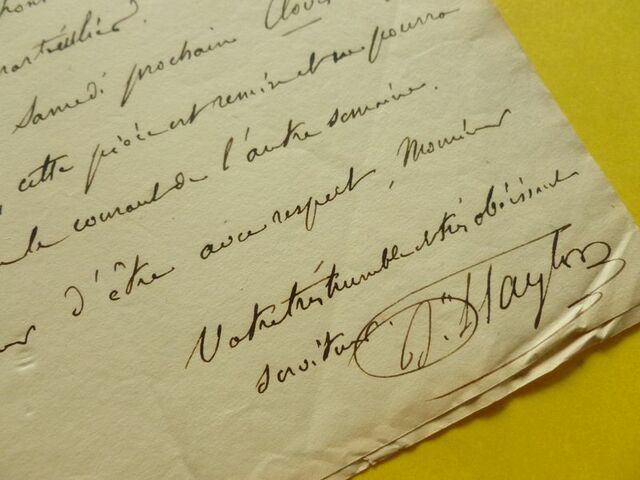 particulier
Samedi prochain Clovis
cette pièce est remise et ne pourra
le courant de l'autre semaine.
d'être avec respect, Monsieur
Votre très humble et très obéissant
serviteur. Bn Taylor